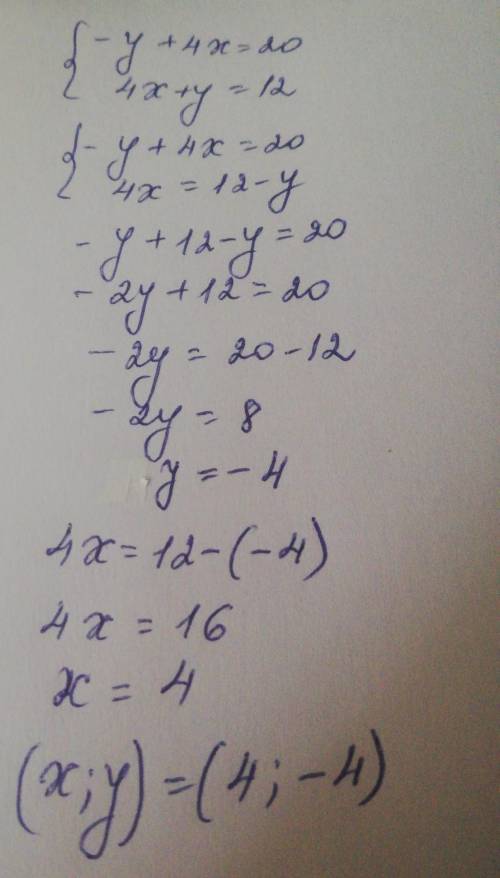 {-y+4x=20
4x+y=12
{-y+4x=20
4x=12-y
-y+12-y=20
-2y+12=20
-2y=20-12
-2y=8
y=-4
4x=12-(-4)
4x=16
x=4
(x;y)=(4;-4)